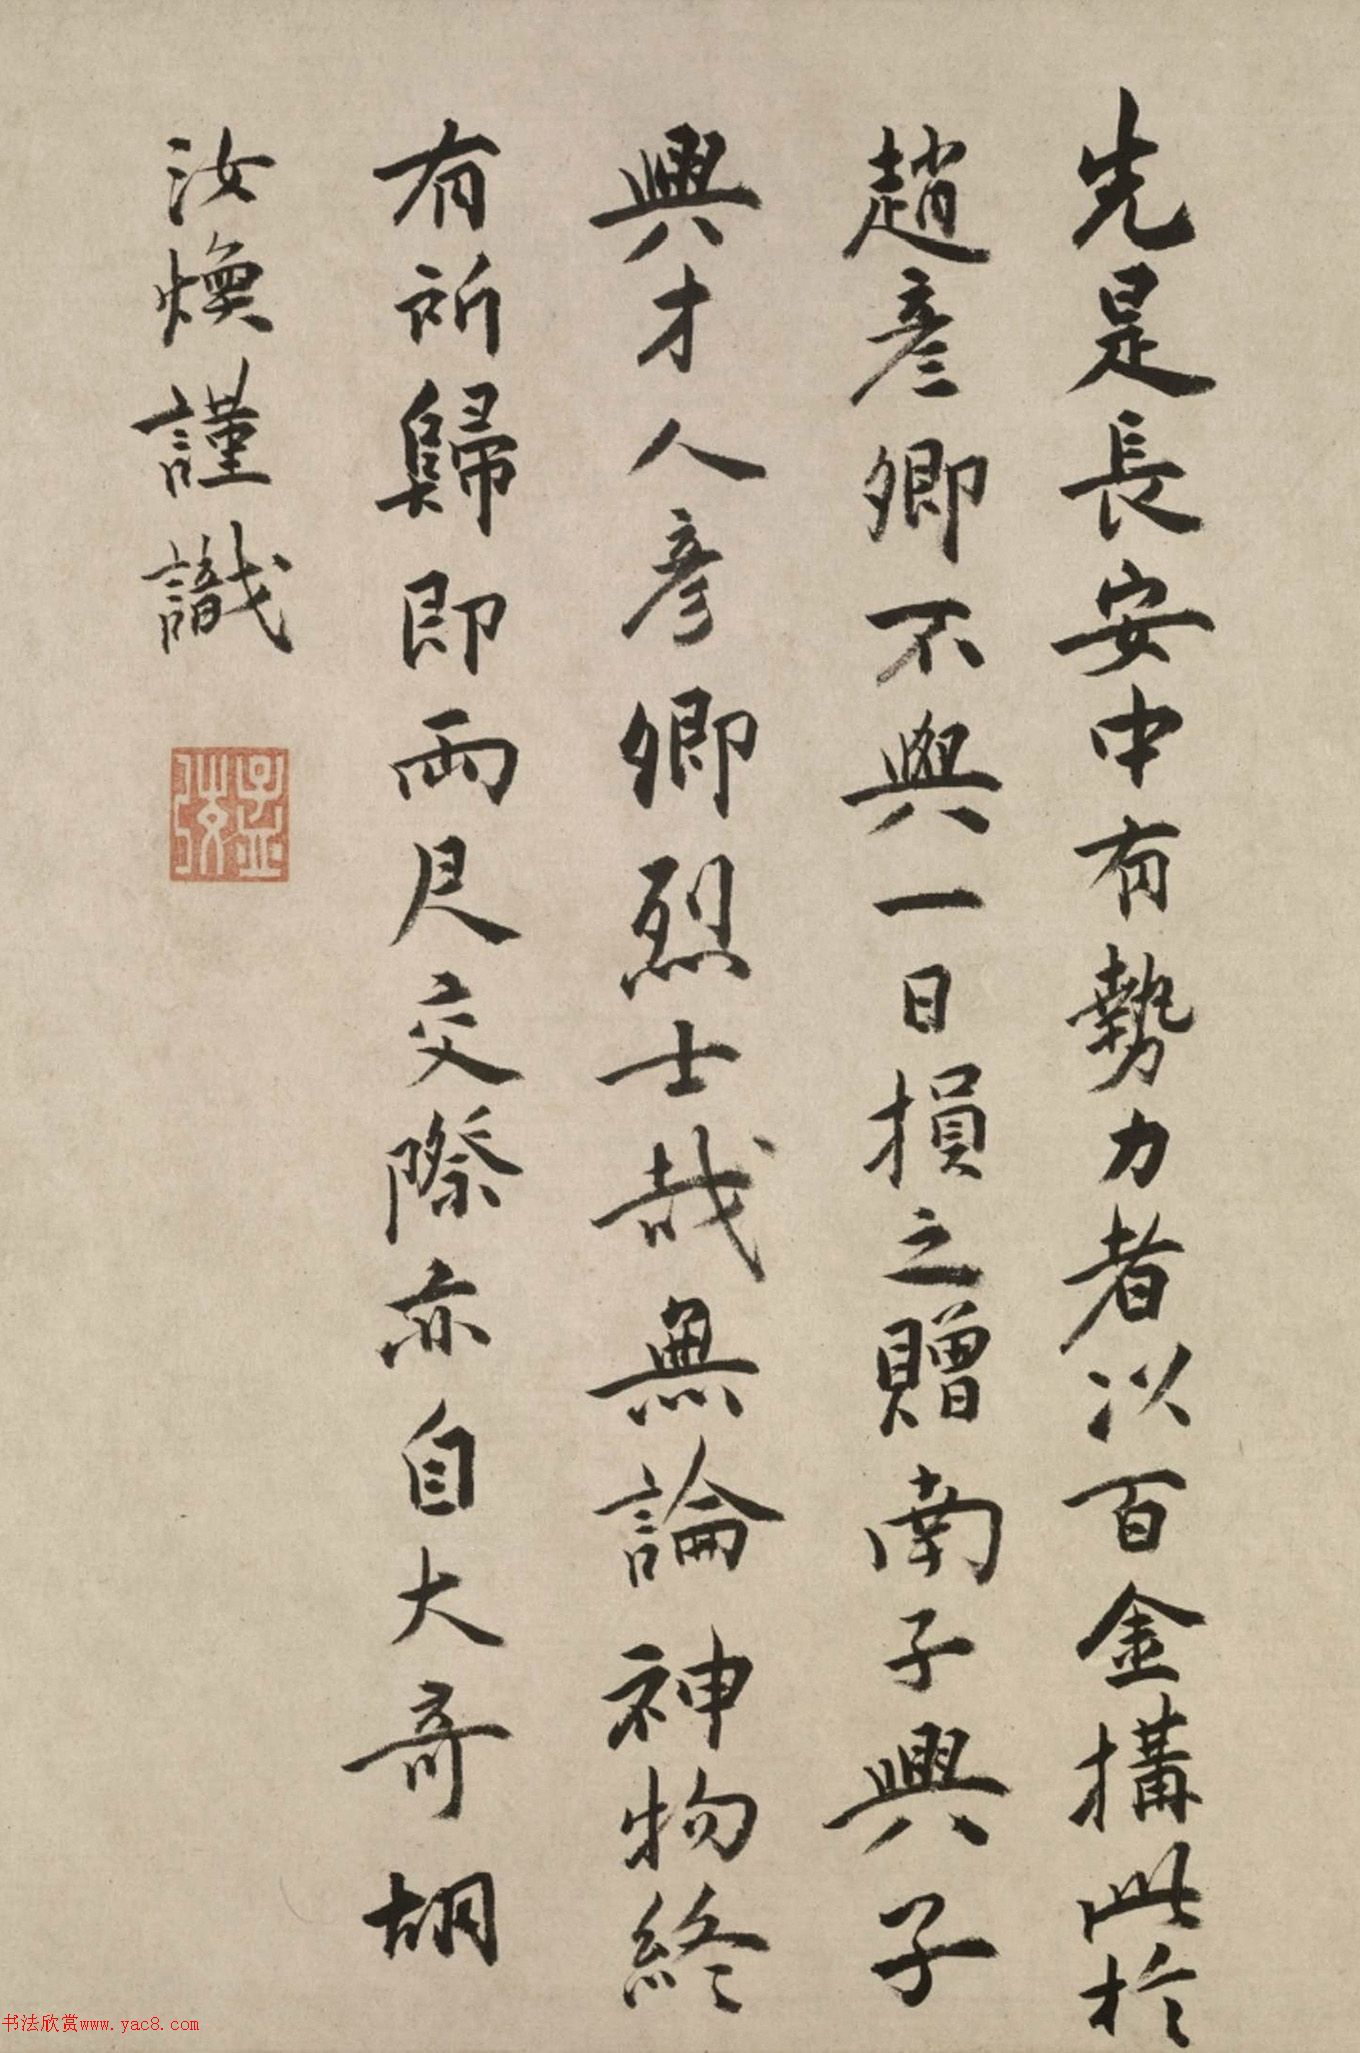 先是長安中有勢力者以百金搆此於
趙彥卿不與一日損之贈南子興子
興才人彥卿烈士哉無論神物終
有所歸即兩尺交際亦自大奇胡
汝煥謹識
书法欣赏www.yac8.com